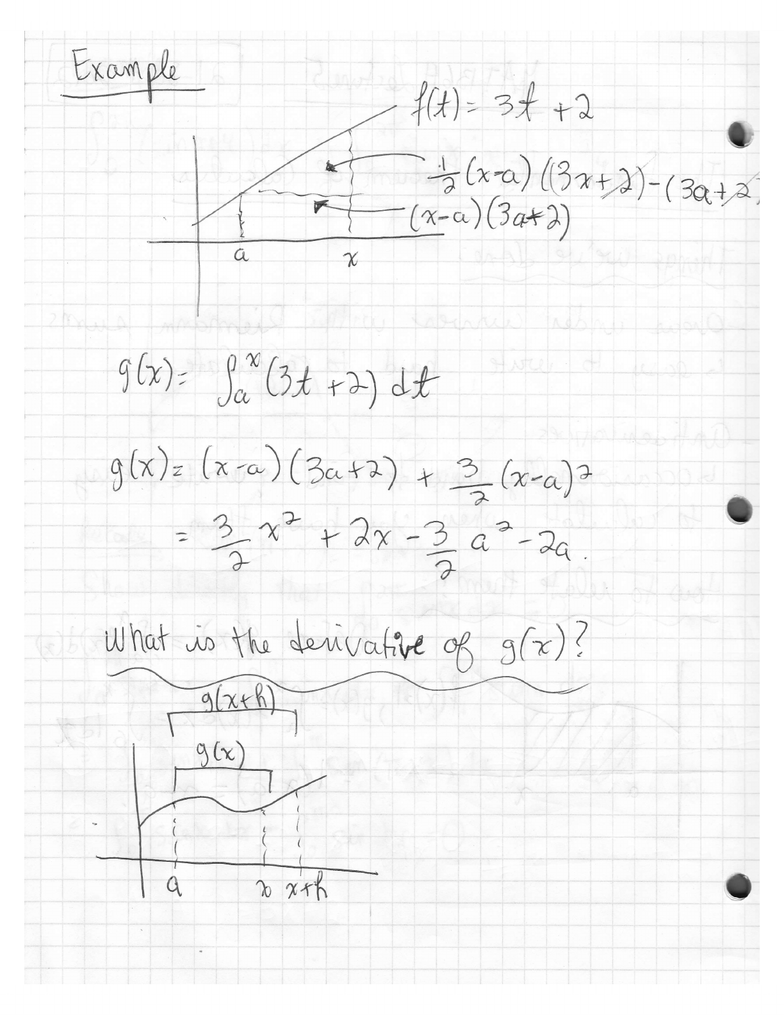 Example
f(t) = 3t + 2
1/2 (x-a) ((3x+2) - (3a+2)
(x-a) (3a+2)
a x
g(x) = ∫ₐˣ (3t+2) dt
g(x) = (x-a) (3a+2) + 3/2 (x-a)²
= 3/2 x² + 2x - 3/2 a² - 2a.
What is the derivative of g(x)?
g(x+h)
g(x)
a x x+h